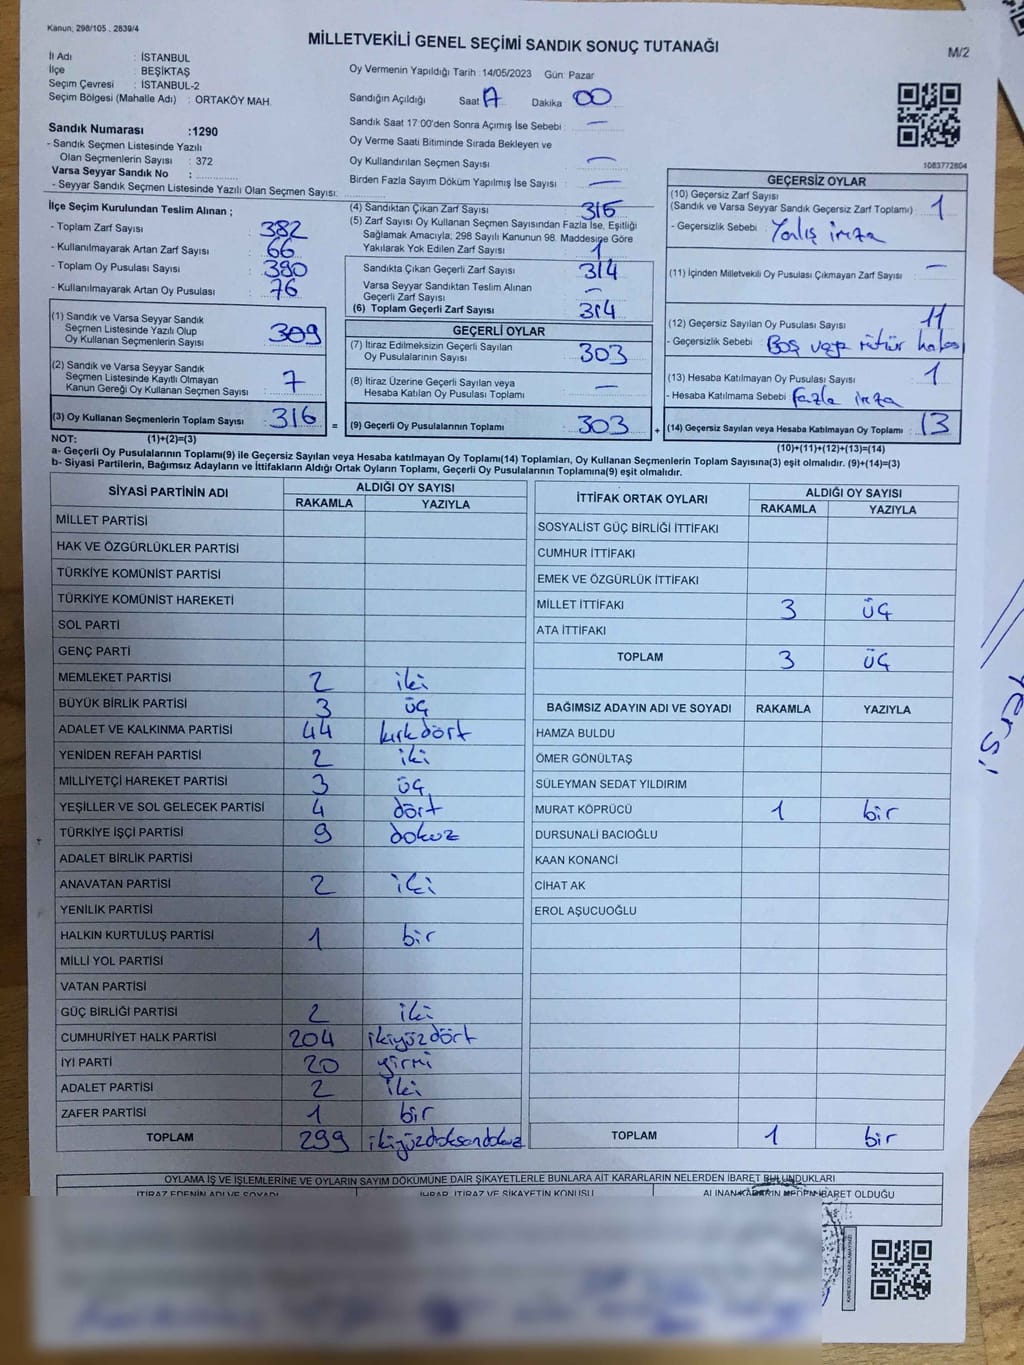 Kanun; 298/105 . 2839/4
MİLLETVEKİLİ GENEL SEÇİMİ SANDIK SONUÇ TUTANAĞI
M/2
İl Adı : İSTANBUL
İlçe : BEŞİKTAŞ
Seçim Çevresi : İSTANBUL-2
Seçim Bölgesi (Mahalle Adı) : ORTAKÖY MAH.
Sandık Numarası :1290
- Sandık Seçmen Listesinde Yazılı
Olan Seçmenlerin Sayısı : 372
Varsa Seyyar Sandık No :
- Seyyar Sandık Seçmen Listesinde Yazılı Olan Seçmen Sayısı:
Oy Vermenin Yapıldığı Tarih :14/05/2023 Gün: Pazar
Sandığın Açıldığı Saat Dakika 00
Sandık Saat 17:00'den Sonra Açımış İse Sebebi : —
Oy Verme Saati Bitiminde Sırada Bekleyen ve
Oy Kullandırılan Seçmen Sayısı : —
Birden Fazla Sayım Döküm Yapılmış İse Sayısı : —
1083772804
İlçe Seçim Kurulundan Teslim Alınan ;
- Toplam Zarf Sayısı : 382
- Kullanılmayarak Artan Zarf Sayısı : 66
- Toplam Oy Pusulası Sayısı : 380
- Kullanılmayarak Artan Oy Pusulası : 76
(1) Sandık ve Varsa Seyyar Sandık
Seçmen Listesinde Yazılı Olup
Oy Kullanan Seçmenlerin Sayısı : 309
(2) Sandık ve Varsa Seyyar Sandık
Seçmen Listesinde Kayıtlı Olmayan
Kanun Gereği Oy Kullanan Seçmen Sayısı : 7
(3) Oy Kullanan Seçmenlerin Toplam Sayısı : 316 =
(4) Sandıktan Çıkan Zarf Sayısı : 316
(5) Zarf Sayısı Oy Kullanan Seçmen Sayısından Fazla İse, Eşitliği
Sağlamak Amacıyla, 298 Sayılı Kanunun 98. Maddesine Göre
Yakılarak Yok Edilen Zarf Sayısı : 1
Sandıkta Çıkan Geçerli Zarf Sayısı : 314
Varsa Seyyar Sandıktan Teslim Alınan
Geçerli Zarf Sayısı : —
(6) Toplam Geçerli Zarf Sayısı : 314
GEÇERLİ OYLAR
(7) İtiraz Edilmeksizin Geçerli Sayılan
Oy Pusulalarının Sayısı : 303
(8) İtiraz Üzerine Geçerli Sayılan veya
Hesaba Katılan Oy Pusulaları Toplamı : —
(9) Geçerli Oy Pusulalarının Toplamı : 303 +
GEÇERSİZ OYLAR
(10) Geçersiz Zarf Sayısı
(Sandık ve Varsa Seyyar Sandık Geçersiz Zarf Toplamı) : 1
- Geçersizlik Sebebi : Yanlış imza
(11) İçinden Milletvekili Oy Pusulası Çıkmayan Zarf Sayısı : —
(12) Geçersiz Sayılan Oy Pusulası Sayısı : 11
- Geçersizlik Sebebi : Boş veya
(13) Hesaba Katılmayan Oy Pusulası Sayısı : 1
- Hesaba Katılmama Sebebi : fazla imza
(14) Geçersiz Sayılan veya Hesaba Katılmayan Oy Toplamı : 13
NOT: (1)+(2)=(3)
(10)+(11)+(12)+(13)=(14)
a- Geçerli Oy Pusulalarının Toplamı(9) ile Geçersiz Sayılan veya Hesaba katılmayan Oy Toplamı(14) Toplamları, Oy Kullanan Seçmenlerin Toplam Sayısına(3) eşit olmalıdır. (9)+(14)=(3)
b- Siyasi Partilerin, Bağımsız Adayların ve İttifakların Aldığı Ortak Oyların Toplamı, Geçerli Oy Pusulalarının Toplamına(9) eşit olmalıdır.
SİYASİ PARTİNİN ADI ALDIĞI OY SAYISI
RAKAMLA YAZIYLA
MİLLET PARTİSİ
HAK VE ÖZGÜRLÜKLER PARTİSİ
TÜRKİYE KOMÜNİST PARTİSİ
TÜRKİYE KOMÜNİST HAREKETİ
SOL PARTİ
GENÇ PARTİ
MEMLEKET PARTİSİ 2 iki
BÜYÜK BİRLİK PARTİSİ 3 üç
ADALET VE KALKINMA PARTİSİ 44 kırkdört
YENİDEN REFAH PARTİSİ 2 iki
MİLLİYETÇİ HAREKET PARTİSİ 3 üç
YEŞİLLER VE SOL GELECEK PARTİSİ 4 dört
TÜRKİYE İŞÇİ PARTİSİ 9 dokuz
ADALET BİRLİK PARTİSİ
ANAVATAN PARTİSİ 2 iki
YENİLİK PARTİSİ
HALKIN KURTULUŞ PARTİSİ 1 bir
MİLLİ YOL PARTİSİ
VATAN PARTİSİ
GÜÇ BİRLİĞİ PARTİSİ 2 iki
CUMHURİYET HALK PARTİSİ 204 ikiyüzdört
İYİ PARTİ 20 yirmi
ADALET PARTİSİ 2 iki
ZAFER PARTİSİ 1 bir
TOPLAM 299 ikiyüzdoksandokuz
İTTİFAK ORTAK OYLARI ALDIĞI OY SAYISI
RAKAMLA YAZIYLA
SOSYALİST GÜÇ BİRLİĞİ İTTİFAKI
CUMHUR İTTİFAKI
EMEK VE ÖZGÜRLÜK İTTİFAKI
MİLLET İTTİFAKI 3 üç
ATA İTTİFAKI
TOPLAM 3 üç
BAĞIMSIZ ADAYIN ADI VE SOYADI RAKAMLA YAZIYLA
HAMZA BULDU
ÖMER GÖNÜLTAŞ
SÜLEYMAN SEDAT YILDIRIM
MURAT KÖPRÜCÜ 1 bir
DURSUNALİ BACIOĞLU
KAAN KONANCİ
CİHAT AK
EROL AŞUCUOĞLU
TOPLAM 1 bir
OYLAMA İŞ VE İŞLEMLERİNE VE OYLARIN SAYIM DÖKÜMÜNE DAİR ŞİKAYETLERLE BUNLARA AİT KARARLARIN NELERDEN İBARET BULUNDUKLARI
İTİRAZ EDENİN ADI VE SOYADI İHBAR, İTİRAZ VE ŞİKAYETİN KONUSU ALINAN KARARIN NEDEN İBARET OLDUĞU